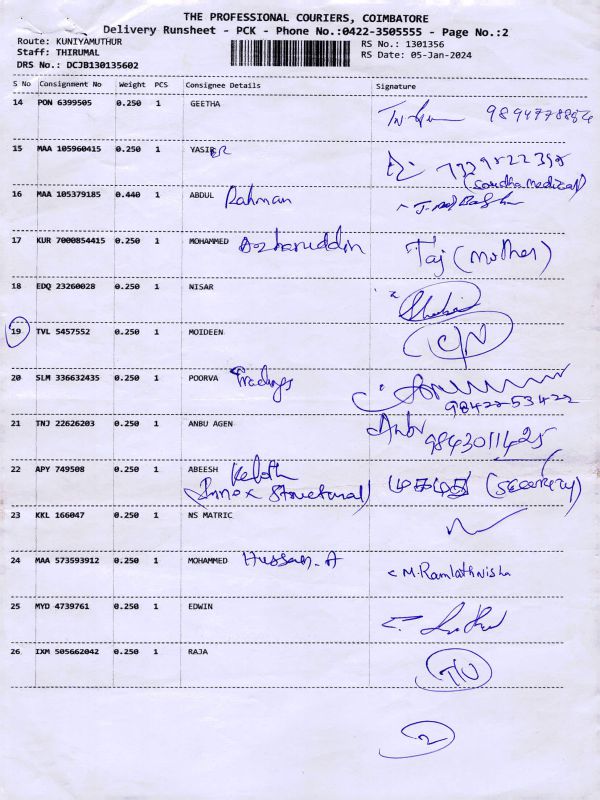 THE PROFESSIONAL COURIERS, COIMBATORE
Delivery Runsheet - PCK - Phone No.:0422-3505555 - Page No.:2
Route: KUNIYAMUTHUR RS No.: 1301356
Staff: THIRUMAL RS Date: 05-Jan-2024
DRS No.: DCJB130135602
S No Consignment No Weight PCS Consignee Details Signature
14 PON 6399505 0.250 1 GEETHA 9894778864
15 MAA 105960415 0.250 1 YASIER
(Soudha medical)
16 MAA 105379185 0.440 1 ABDUL Rahman
17 KUR 7000854415 0.250 1 MOHAMMED Azharuddin Taj (mother)
18 EDQ 23260028 0.250 1 NISAR
19 TVL 5457552 0.250 1 MOIDEEN C/N
20 SLM 336632435 0.250 1 POORVA Tradings
98422-53422
21 TNJ 22626203 0.250 1 ANBU AGEN Anbu
9843011425
22 APY 749508 0.250 1 ABEESH
(Innox Structural) (Secerety)
23 KKL 166047 0.250 1 NS MATRIC
24 MAA 573593912 0.250 1 MOHAMMED Hussan.A M.Ramlathnisha
25 MYD 4739761 0.250 1 EDWIN
26 IXM 505662042 0.250 1 RAJA
2